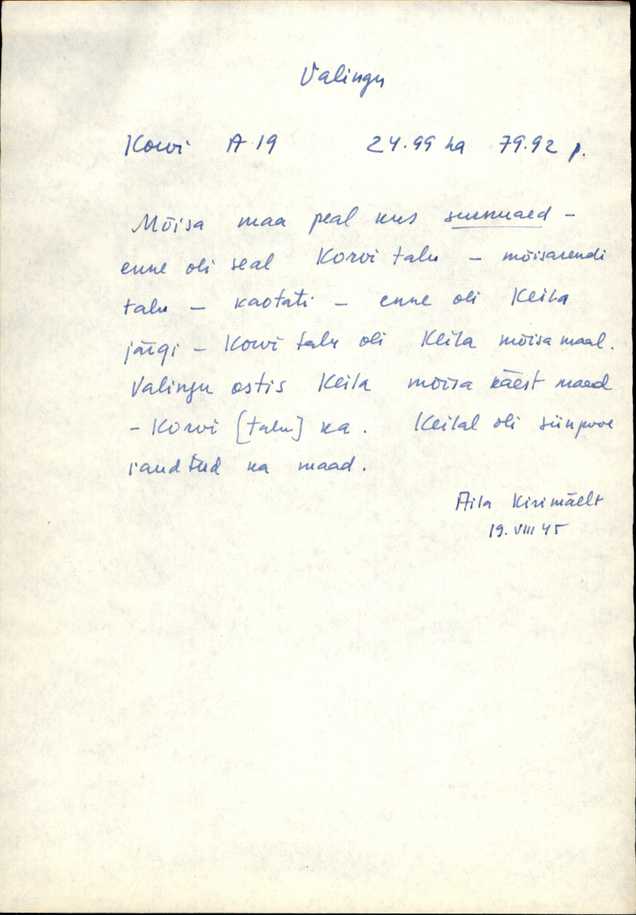 Valingu
Korvi A 19 24.99 ha 79.92 p.
Mõisa maa peal kus surnuaed –
enne oli seal Korvi talu – mõisarendi
talu – kaotati – enne oli Keila
järgi – Korvi talu oli Keila mõisa maal.
Valingu ostis Keila mõisa käest maad
– Korvi [talu] ka. Keilal oli siinpool
raudteed ka maad.
Aila Kirimäelt
19. VIII 45